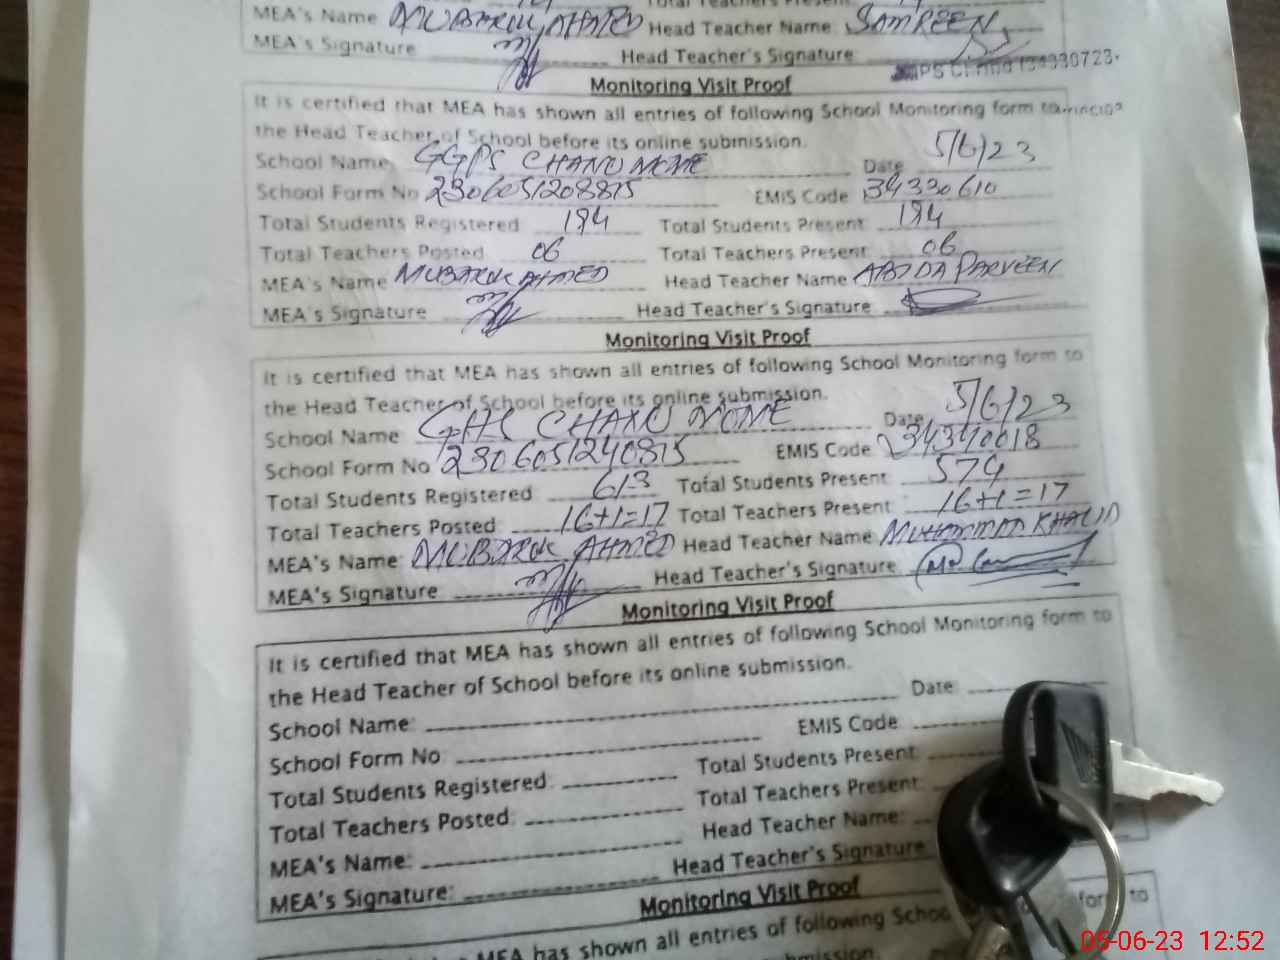 MEA's Name MUBARUK AHMED Head Teacher Name: SAMREEN
MEA's Signature Head Teacher's Signature
Monitoring Visit Proof
It is certified that MEA has shown all entries of following School Monitoring form to
the Head Teacher of School before its online submission.
School Name GGPS CHANU MOME Date 5/6/23
School Form No 2306051208815 EMIS Code 34330610
Total Students Registered 194 Total Students Present 194
Total Teachers Posted 06 Total Teachers Present 06
MEA's Name MUBARUK AHMED Head Teacher Name ABIDA PARVEEN
MEA's Signature Head Teacher's Signature
Monitoring Visit Proof
It is certified that MEA has shown all entries of following School Monitoring form to
the Head Teacher of School before its online submission.
School Name GHS CHANU MOME Date 5/6/23
School Form No 2306051240815 EMIS Code 34340018
Total Students Registered 613 Total Students Present 574
Total Teachers Posted: 16+1=17 Total Teachers Present 16+1=17
MEA's Name: MUBARUK AHMED Head Teacher Name MUHAMMAD KHALID
MEA's Signature Head Teacher's Signature
Monitoring Visit Proof
It is certified that MEA has shown all entries of following School Monitoring form to
the Head Teacher of School before its online submission.
School Name: Date:
School Form No EMIS Code
Total Students Registered: Total Students Present:
Total Teachers Posted: Total Teachers Present:
MEA's Name: Head Teacher Name:
MEA's Signature: Head Teacher's Signature
Monitoring Visit Proof
It is certified that MEA has shown all entries of following School form to
05-06-23 12:52